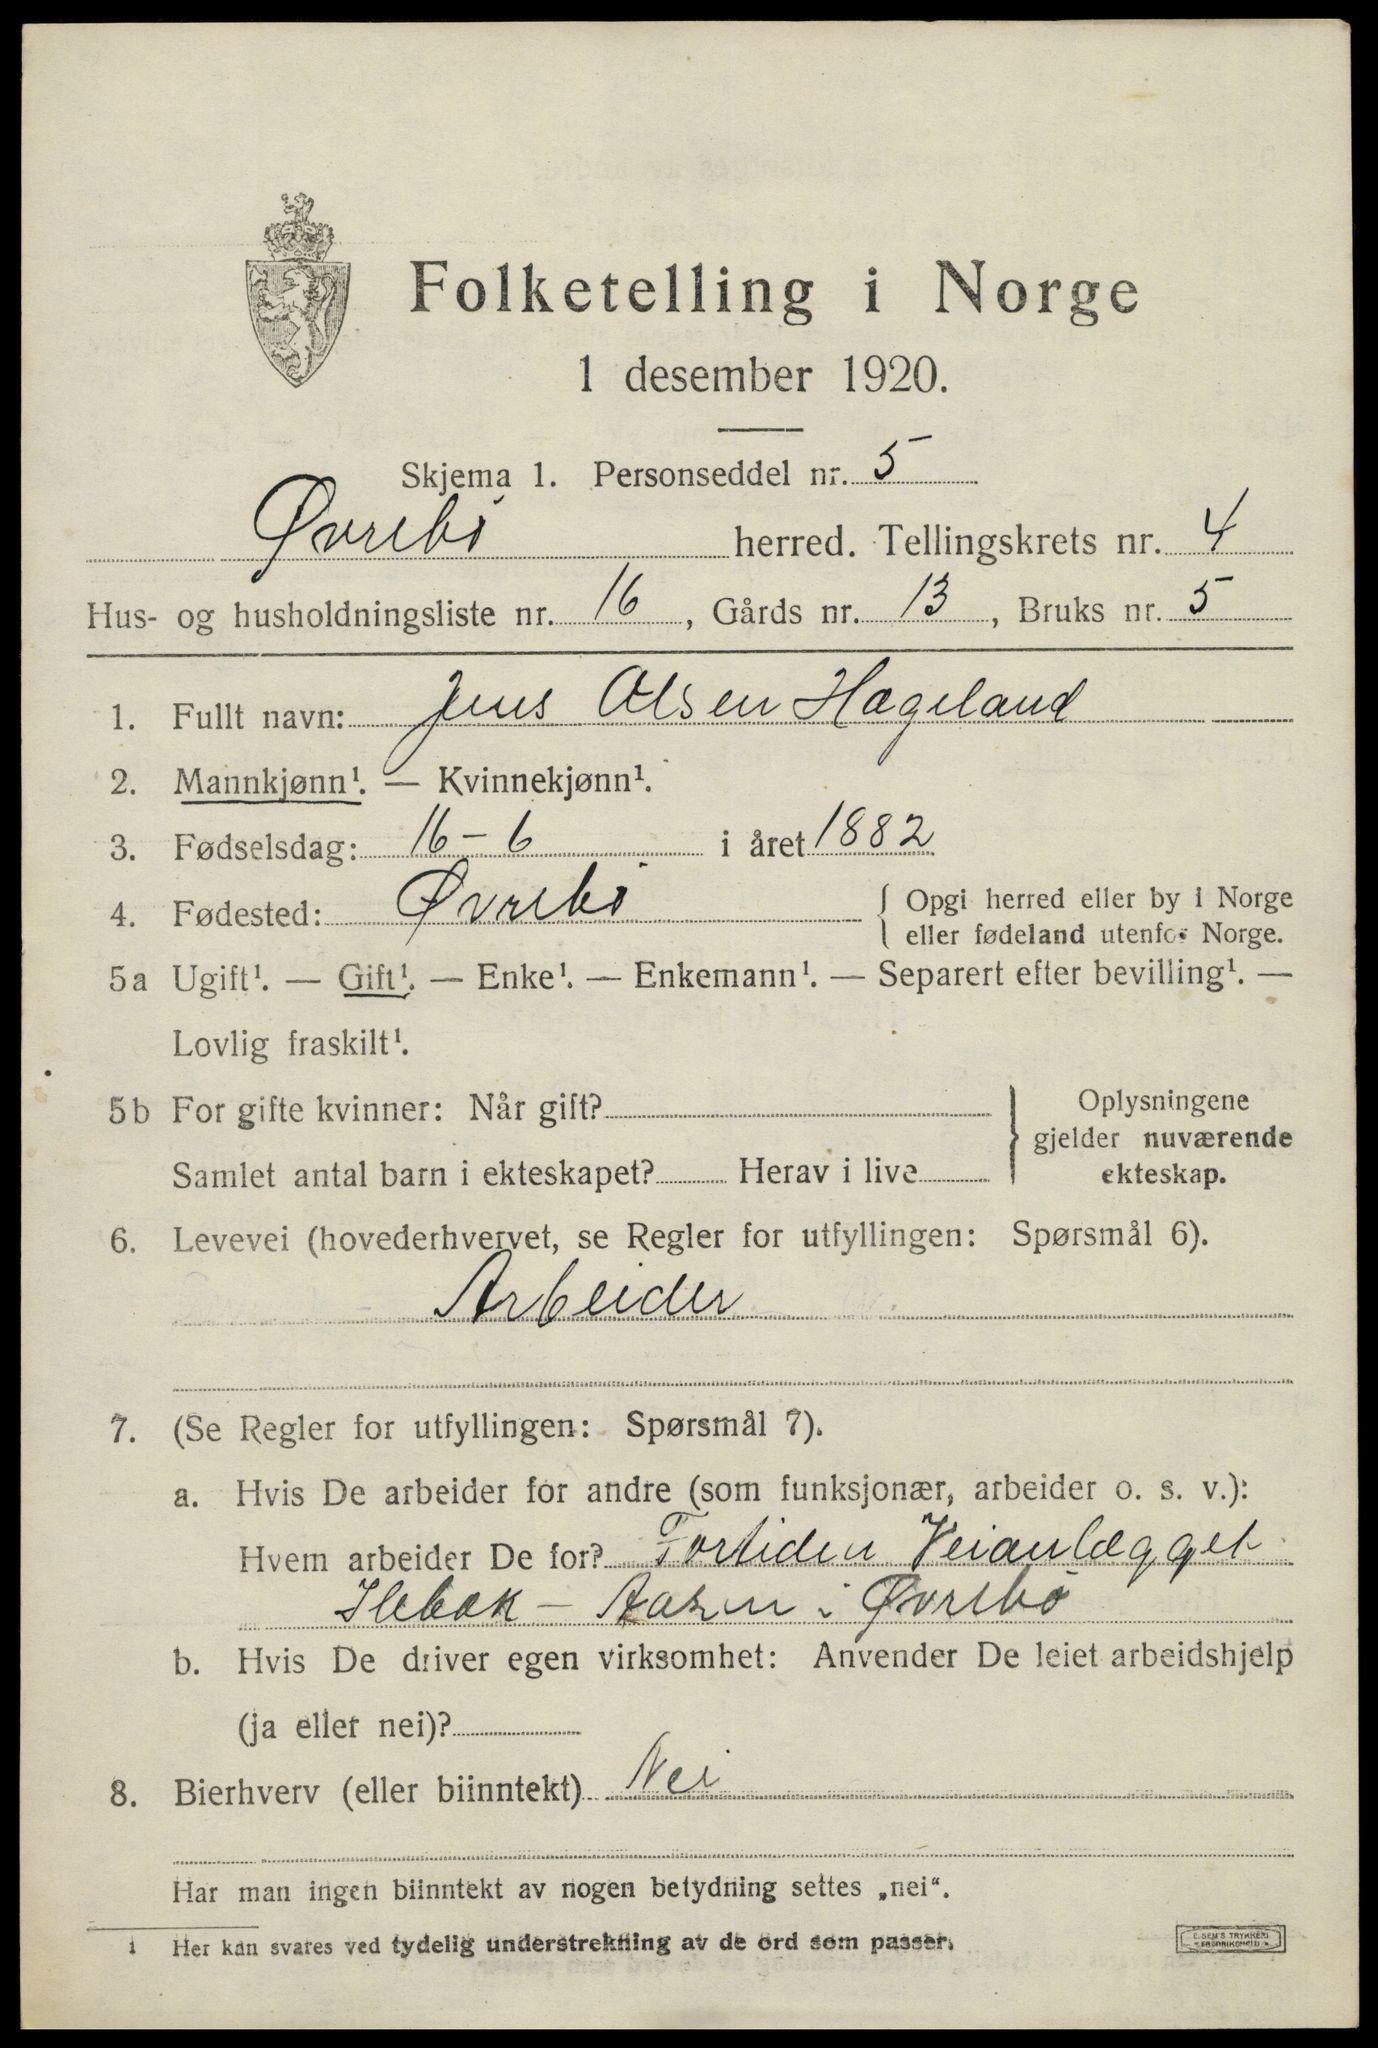 Folketelling i Norge
1 desember 1920.
Skjema 1. Personseddel nr. 5
Øvrebö herred. Tellingskrets nr. 4
Hus- og husholdningsliste nr. 16, Gårds nr. 13, Bruks nr. 5
1. Fullt navn: Jens Olsen Hægeland
2. Mannkjønn¹. — Kvinnekjønn¹.
3. Fødselsdag: 16-6 i året 1882
4. Fødested: Øvrebö { Opgi herred eller by i Norge
eller fødeland utenfor Norge.
5a Ugift¹. — Gift¹. — Enke¹. — Enkemann¹. — Separert efter bevilling¹. —
Lovlig fraskilt¹.
5b For gifte kvinner: Når gift?
Samlet antal barn i ekteskapet? Herav i live
} Oplysningene
gjelder nuværende
ekteskap.
6. Levevei (hovederhvervet, se Regler for utfyllingen: Spørsmål 6).
Arbeider
7. (Se Regler for utfyllingen: Spørsmål 7).
a. Hvis De arbeider for andre (som funksjonær, arbeider o. s. v.):
Hvem arbeider De for? Fortiden Veianlægget
Ilebæk - i Øvrebö
b. Hvis De driver egen virksomhet: Anvender De leiet arbeidshjelp
(ja eller nei)?
8. Bierhverv (eller biinntekt) Nei
Har man ingen biinntekt av nogen betydning settes „nei“.
1 Her kan svares ved tydelig understrekning av de ord som passer.
E. SEM'S TRYKKERI
FREDRIKSHALD